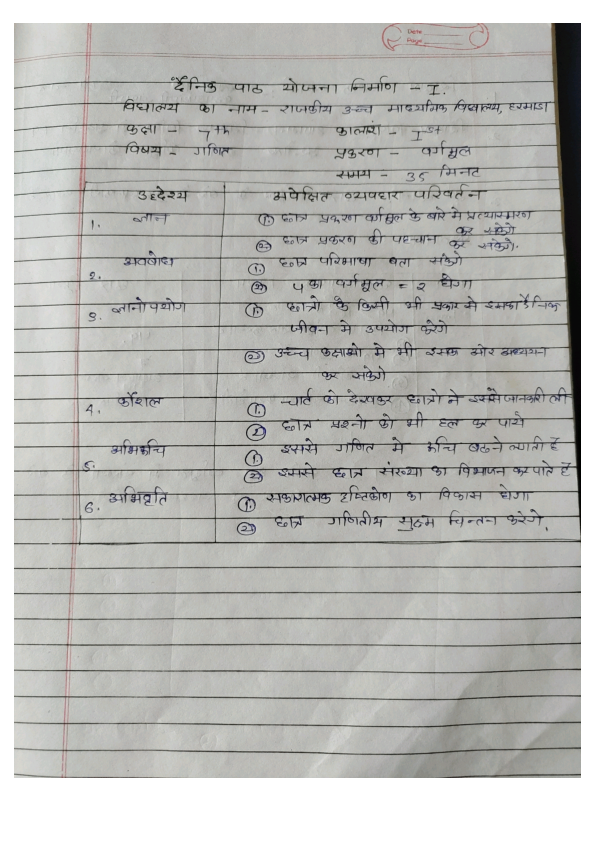 Date
Page
दैनिक पाठ योजना निर्माण - I.
विद्यालय का नाम - राजकीय उच्च माध्यमिक विद्यालय, हरमाडा
कक्षा - 7th कालांश - Ist
विषय - गणित प्रकरण - वर्गमूल
समय - 35 मिनट
उद्देश्य अपेक्षित व्यवहार परिवर्तन
1. ज्ञान ① छात्र प्रकरण वर्गमूल के बारे मे प्रत्यास्मरण कर सकेगे
② छात्र प्रकरण की पहचान कर सकेगे.
2. अवबोध ① छात्र परिभाषा बता सकेगे
② 4 का वर्गमूल = 2 होगा
3. ज्ञानोपयोग ① छात्रो के किसी भी प्रकार से इसका दैनिक
जीवन मे उपयोग करेगे
② उच्च कक्षाओ मे भी इसका और अध्ययन
कर सकेगे
4. कौशल ① चार्ट को देखकर छात्रो ने इससे जानकारी ली
② छात्र प्रश्नो को भी हल कर पाये
5. अभिरूचि ① इससे गणित मे रूचि बढने लगती है
② इससे छात्र संख्या का विभाजन कर पाते है
6. अभिवृति ① सकारात्मक दृष्टिकोण का विकास होगा
② छात्र गणितीय सुक्ष्म चिन्तन करेगे.